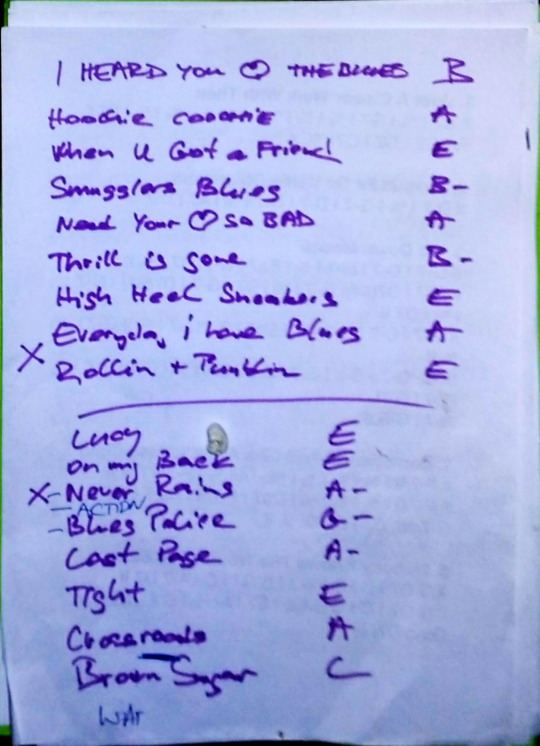 I HEARD YOU ♡ THE BLUES B
Hoochie coochie A
When U Got a Friend E
Smugglers Blues B-
Need Your ♡ So BAD A
Thrill is gone B-
High Heel Sneakers E
Everyday i have Blues A
X Rollin + Tumblin E
Lucy E
On my Back E
X - Never Rains A-
- ACTION
- Blues Police G-
Last Page A-
Tight E
Crossroads A
Brown Sugar C
WAT